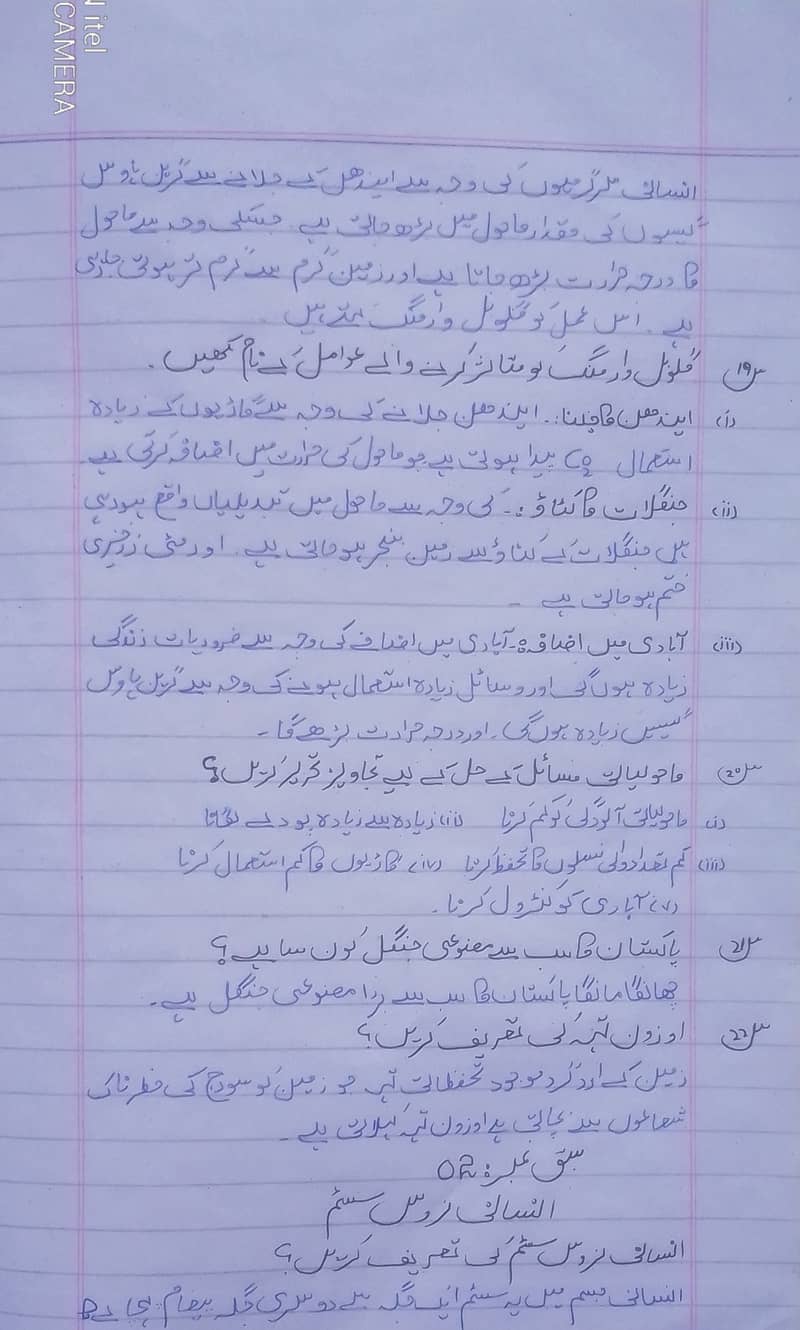 itel
CAMERA
انسانی سرگرمیوں کی وجہ سے ایندھن کے جلانے سے گرین ہاؤس
گیسوں کی مقدار ماحول میں بڑھ جاتی ہے۔ جسکی وجہ سے ماحول
کا درجہ حرارت بڑھ جاتا ہے اور زمین گرم سے گرم تر ہوتی جارہی
ہے۔ اس عمل کو گلوبل وارمنگ کہتے ہیں۔
س19 گلوبل وارمنگ کو متاثر کرنے والے عوامل کے نام لکھیں۔
(i) ایندھن کا جلنا:۔ ایندھن جلانے کی وجہ سے گاڑیوں کے زیادہ
استعمال CO2 پیدا ہوتی ہے جو ماحول کی حرارت میں اضافہ کرتی ہے
(ii) جنگلات کا کٹاؤ:۔ کی وجہ سے ماحول میں تبدیلیاں واقع ہورہی
ہیں جنگلات کے کٹاؤ سے زمین بنجر ہوجاتی ہے۔ اور مٹی زرخیزی
ختم ہوجاتی ہے۔
(iii) آبادی میں اضافہ:۔ آبادی میں اضافے کی وجہ سے ضروریات زندگی
زیادہ ہوں گی اور وسائل زیادہ استعمال ہونے کی وجہ سے گرین ہاوس
گیسیں زیادہ ہوں گی۔ اور درجہ حرارت بڑھے گا۔
س20 ماحولیاتی مسائل کے حل کے لیے تجاویز تحریر کریں؟
(i) ماحولیاتی آلودگی کو کم کرنا (ii) زیادہ سے زیادہ پودے لگانا
(iii) کم تعداد والی نسلوں کا تحفظ کرنا (iv) گاڑیوں کا کم استعمال کرنا
(v) آبادی کو کنٹرول کرنا۔
س21 پاکستان کا سب سے مصنوعی جنگل کون سا ہے؟
چھانگا مانگا پاکستان کا سب سے بڑا مصنوعی جنگل ہے۔
س22 اوزون تہہ کی تعریف کریں؟
زمین کے اردگرد موجود تحفظاتی تہہ جو زمین کو سورج کی خطرناک
شعاعوں سے بچاتی ہے اوزون تہہ کہلاتی ہے۔
سبق نمبر: 02
انسانی نروس سسٹم
انسانی نروس سسٹم کی تعریف کریں؟
انسانی جسم میں یہ سسٹم ایک جگہ سے دوسری جگہ پیغام